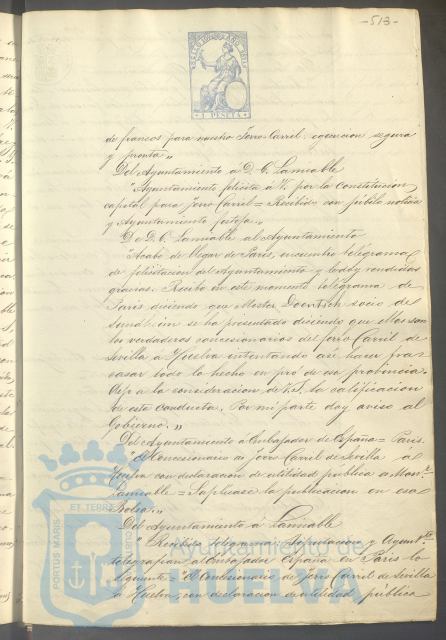 -513-
SELLO 10º AÑO 1871
1 PESETA
de francos para nuestro Ferro-Carril: ejecucion segura
y pronta,,
Del Ayuntamiento a D. C. Lamiable
"Ayuntamiento felicita a V. por la constitucion
capital para ferro Carril = Recibida con júbilo noticia
y Ayuntamiento festeja.,,
De D. C. Lamiable al Ayuntamiento
"Acabo de llegar de Paris, encuentro telégrama
de felicitacion del Ayuntamiento y le doy rendidas
gracias. Recibo en este momento telégrama de
Paris diciendo que Mister Doentsch socio de
Sundhein se ha presentado diciendo que Mas son
los verdaderos concesionarios del ferro Carril de
Sevilla a Huelva intentando asi hacer fra-
casar todo lo hecho en pró de esa probincia.
Dejo a la consideracion de V.S. la calificacion
de esta conducta. Por mi parte doy aviso al
Gobierno.,,
Del Ayuntamiento a Embajador de España = Paris.
"El Concesionario de ferro Carril de Sevilla a
Huelva con declaracion de utilidad pública a Monr.
Lamiable = Suplicase la publicacion en esa
Bolsa.,,
Del Ayuntamiento a Lamiable
"Recibido telegrama: Diputacion y Ayuntto
telegrafian al Embajador España en Paris lo
siguiente = "El Concesionario de ferro Carril de Sevilla
a Huelva, con declaracion de utilidad pública
Ayuntamiento de
HUELVA
PORTUS MARIS ET TERRE CUSTODIA